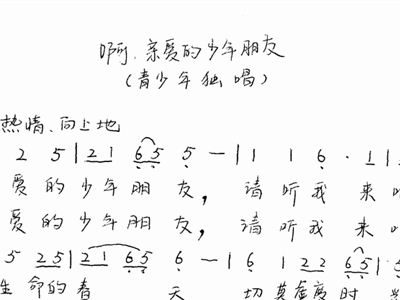 啊,亲爱的少年朋友
(青少年独唱)
热情、向上地
2 5 | 2 1 6 5 5 — | 1 1 6 · 1 |
爱 的 少 年 朋 友, 请 听 我 来
爱 的 少 年 朋 友, 请 听 我 来
5 2 5 | 2 1 6 5 6 — | 6 1 2 2 6 5 5
生 命 的 春 天 一 切 莫 虚 度 时